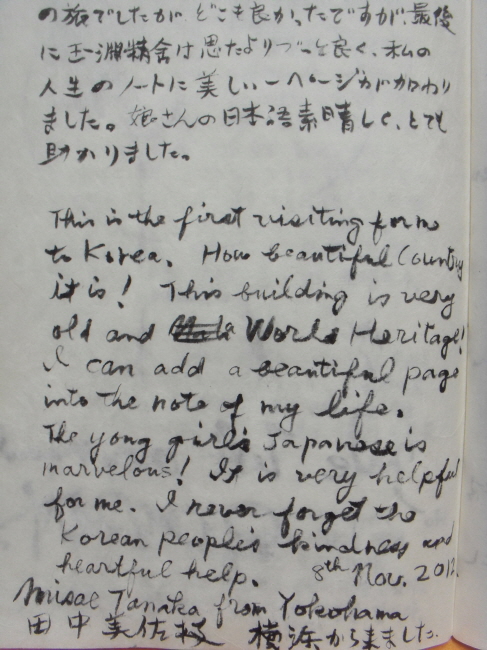 の旅でしたが、どこも良かったですが、最後
に玉淵精舎は思たよりずーと良く、私の
人生のノートに美しい一ページが加わり
ました。娘さんの日本語素晴しく、とても
助かりました。
This is the first visiting for me
to Korea. How beautiful Country
it is! This building is very
old and World Heritage!
I can add a beautiful page
into the note of my life.
The yong girl's Japanese is
marvelous! It is very helpful
for me. I never forget the
Korean people's kindness and
heartful help. 8th Nov. 2012.
Misae Tanaka from Yokohama
田中美佐枝 横浜から来ました。